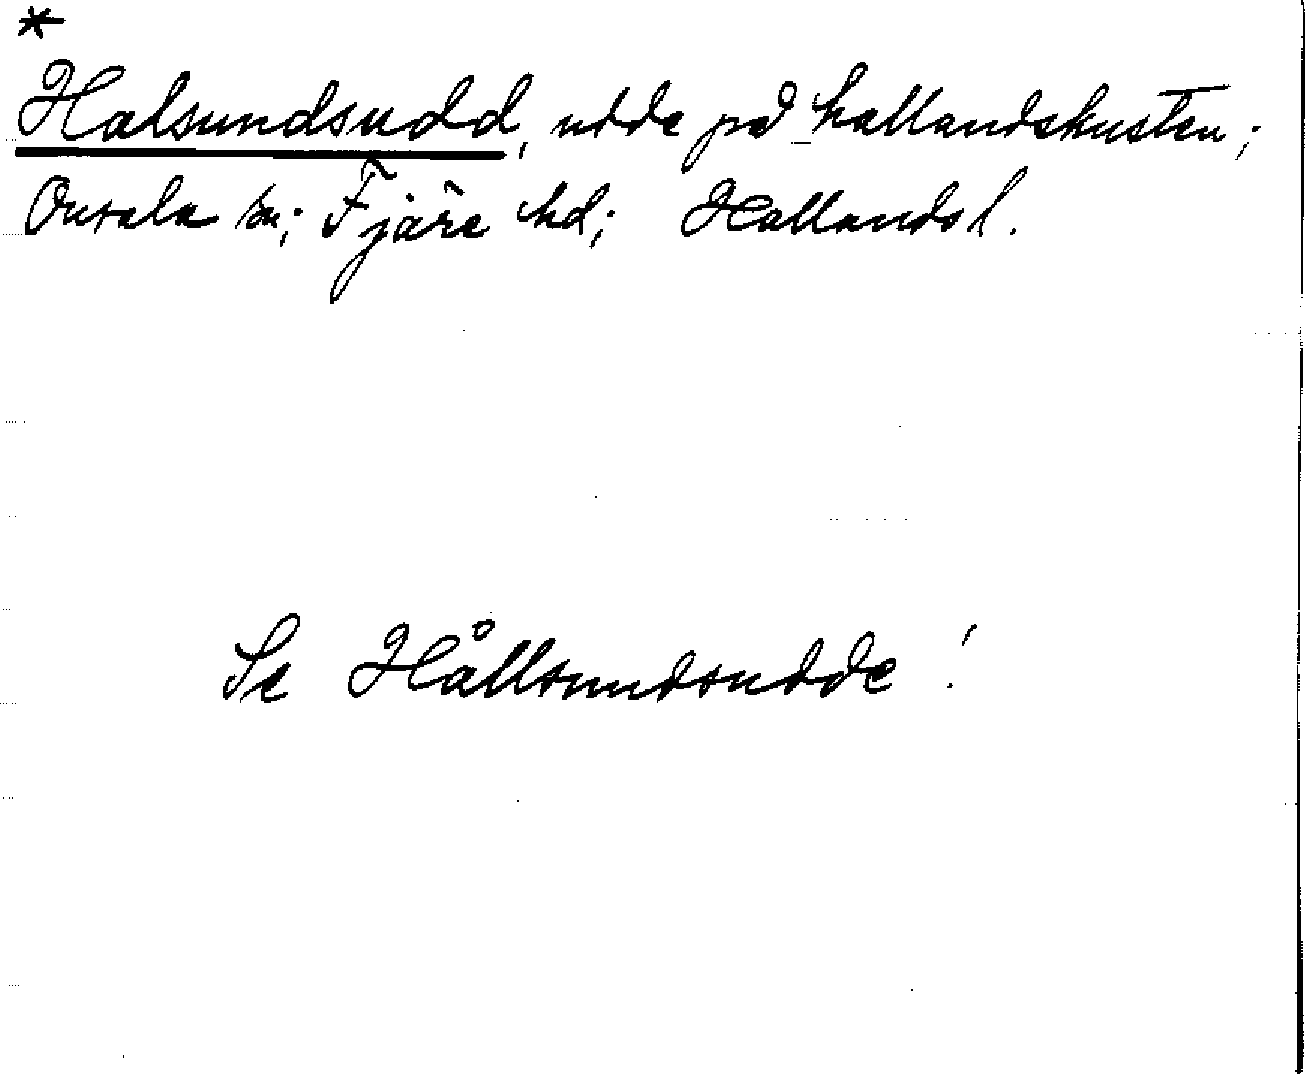 *
Halsundsudd, udde på hallandskusten;
Onsala sn; Fjäre hd; Hallands l.
Se Hållsundsudde!